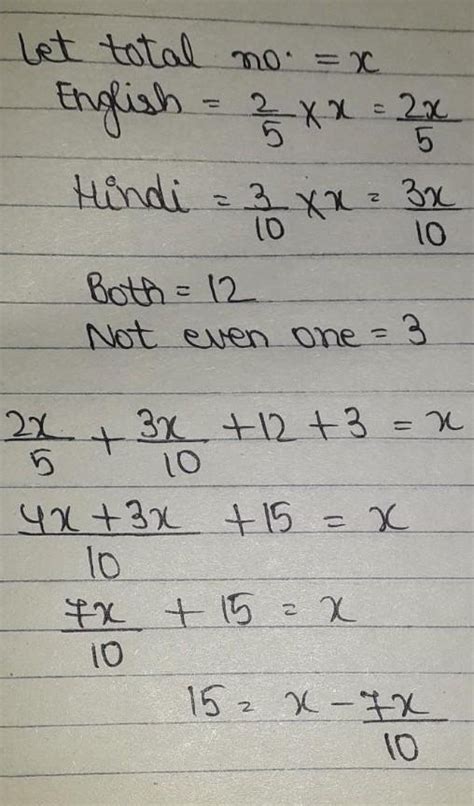 Let total no. = x
English = 2/5 × x = 2x/5
Hindi = 3/10 × x = 3x/10
Both = 12
Not even one = 3
2x/5 + 3x/10 + 12 + 3 = x
4x + 3x/10 + 15 = x
7x/10 + 15 = x
15 = x - 7x/10